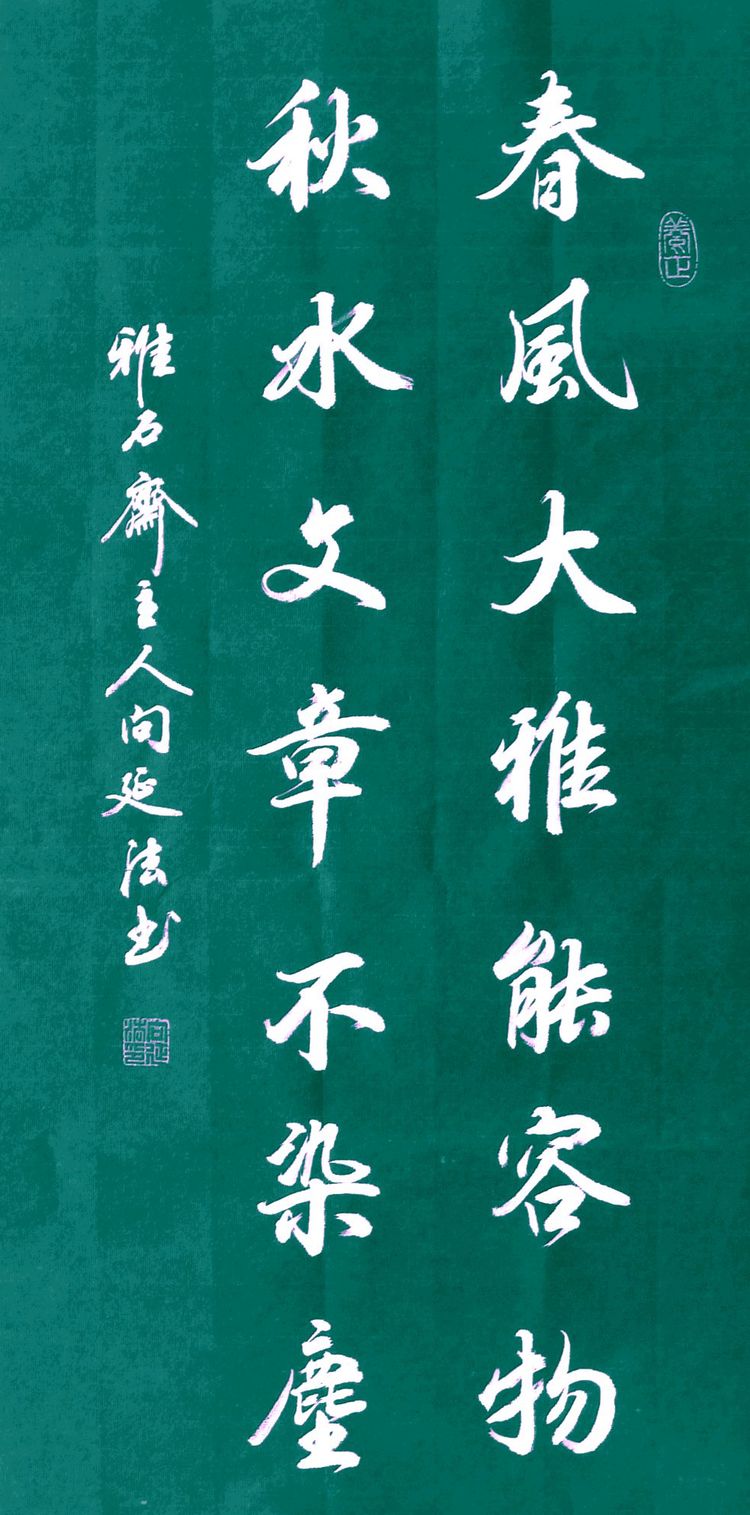 春風大雅能容物
養正
秋水文章不染塵
雅石齋主人向延法书